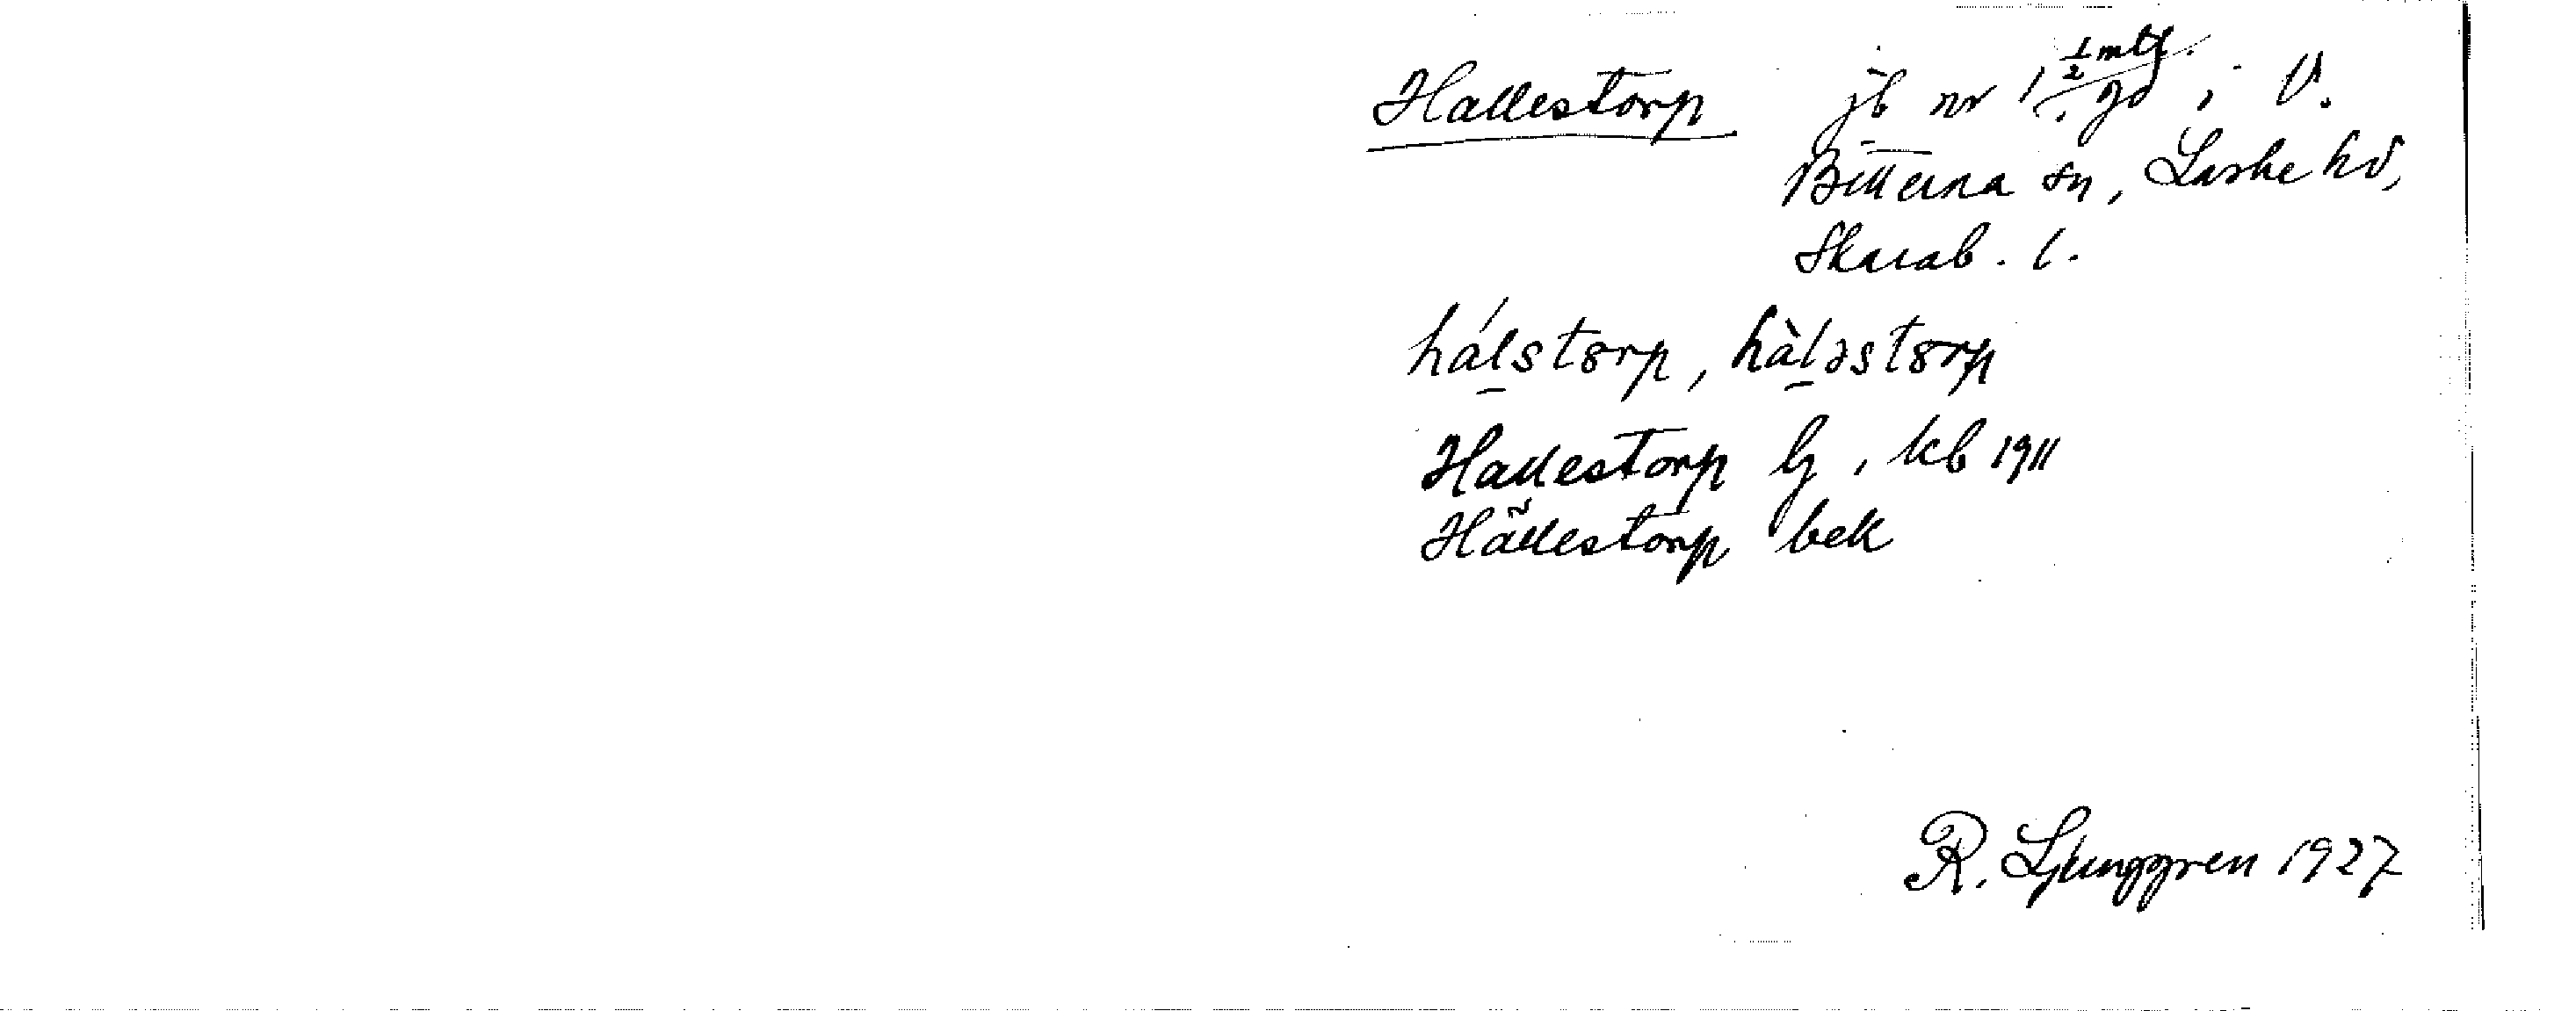 Hallestorp jb nr 1 ½ mtl. gd i V.
Bitterna sn, Laske hd,
Skarab. l.
hálstorp, hàləstorp
Hallestorp lj, kb 1911
Hällestorp bek
R. Ljunggren 1927